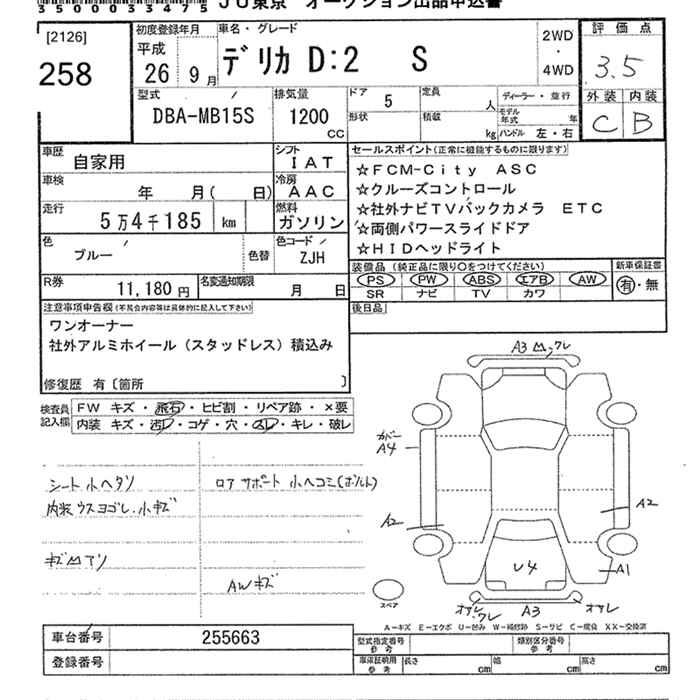 35000033475
JU東京 オークション出品申込書
[2126]
258
初度登録年月
平成
26 9月
車名・グレード
デリカ D:2 S
2WD
・
4WD
評価点
3.5
外装 内装
C B
型式
DBA-MB15S
排気量
1200
CC
ドア
5
形状
定員
人
積載
kg
ディーラー・並行
モデル年式 年
ハンドル 左・右
車歴 自家用
シフト IAT
車検 年 月( 日)
冷房 AAC
走行 5万4千185 km
燃料 ガソリン
色 ブルー
色替
色コード ZJH
R券 11,180円
名変通知期限 月 日
セールスポイント(正常に機能するものに限ります)
☆FCM-City ASC
☆クルーズコントロール
☆社外ナビTVバックカメラ ETC
☆両側パワースライドドア
☆HIDヘッドライト
装備品(純正品に限り○をつけてください)
PS PW ABS エアB AW
SR ナビ TV カワ
新車保証書
有・無
後日品
注意事項申告欄(不具合内容等は具体的に記入して下さい)
ワンオーナー
社外アルミホイール(スタッドレス)積込み
修復歴 有〔箇所 〕
検査員記入欄
FW キズ・飛石・ヒビ割・リペア跡・×要
内装 キズ・汚レ・コゲ・穴・スレ・キレ・破レ
シート小ヘタリ
内装ウスヨゴレ.小キズ
キズ凹アリ
ロアサポート小ヘコミ(ボルト)
AWキズ
A3 凹 ワレ
カバー
A4
A2
A2
A1
U4
オサレ
ワレ
A3
オサレ
スペア
A−キズ E−エクボ U−凹み W−補修跡 S−サビ C−腐食 XX−交換済
車台番号 255663
登録番号
型式指定番号
参考
類別区分番号
参考
車庫証明用
参考
長さ cm
幅 cm
高さ cm